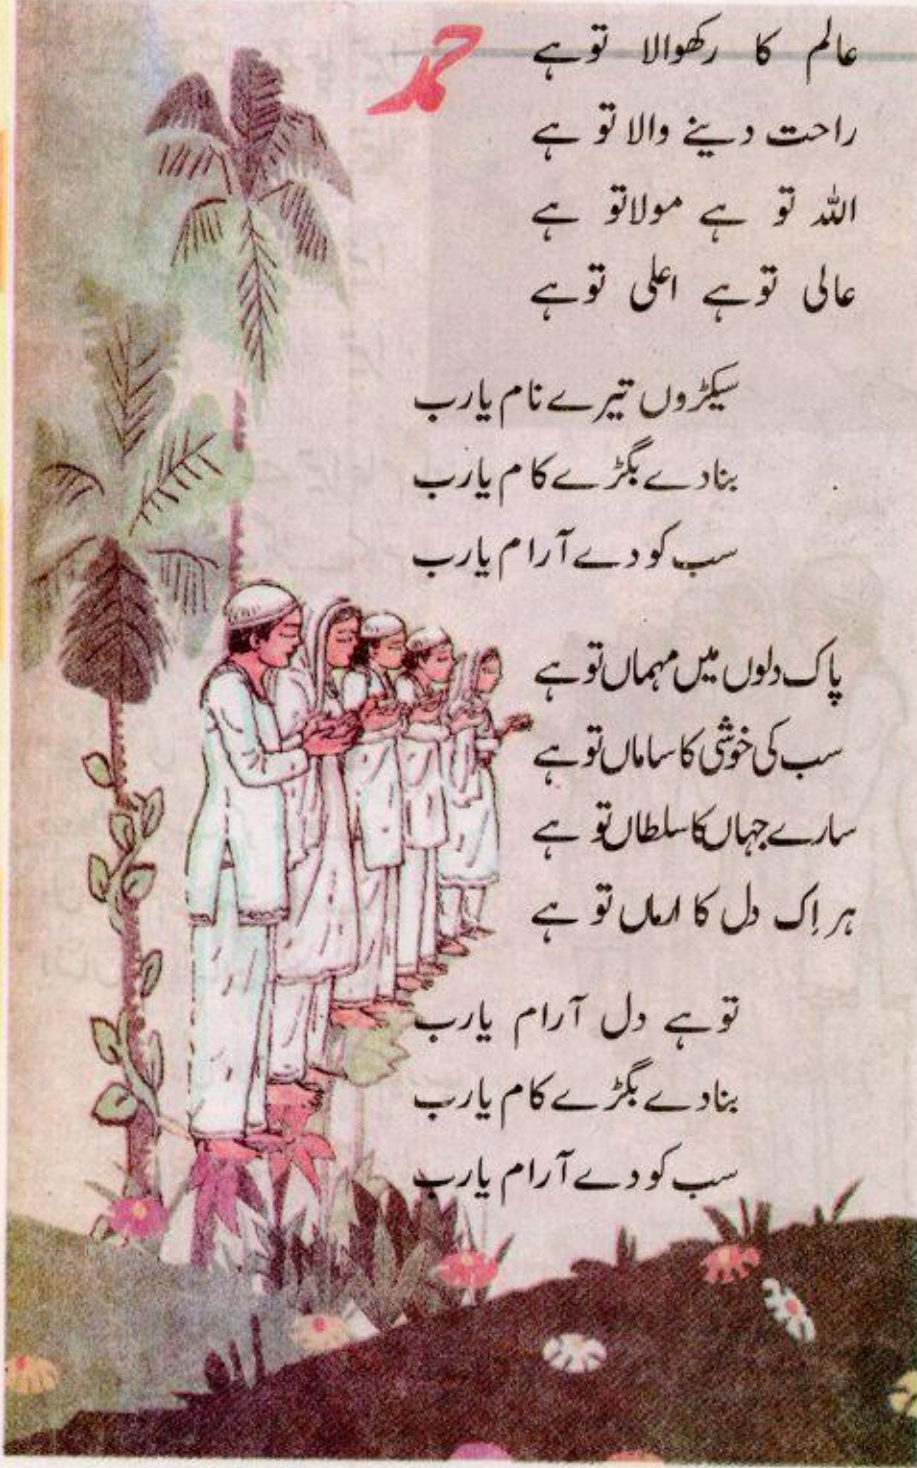 حمد
عالم کا رکھوالا تو ہے
راحت دینے والا تو ہے
اللہ تو ہے مولا تو ہے
عالی تو ہے اعلی تو ہے
سیکڑوں تیرے نام یارب
بنادے بگڑے کام یارب
سب کو دے آرام یارب
پاک دلوں میں مہماں تو ہے
سب کی خوشی کا ساماں تو ہے
سارے جہاں کا سلطاں تو ہے
ہر اِک دل کا ارماں تو ہے
تو ہے دل آرام یارب
بنادے بگڑے کام یارب
سب کو دے آرام یارب